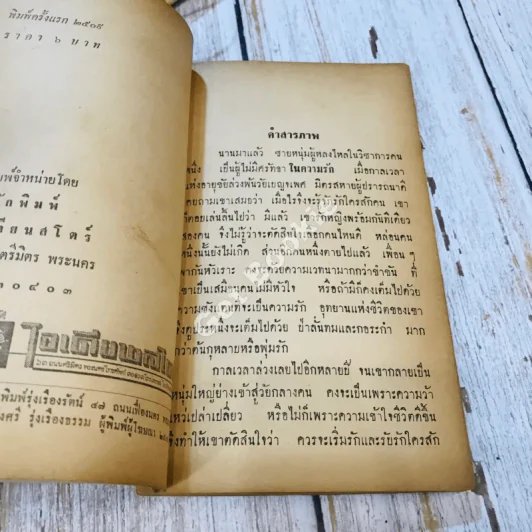 พิมพ์ครั้งแรก ๒๕๑๙
ราคา ๖ บาท
โดย
พิมพ์
สโตร์
ตรีมิตร พระนคร
๐๔๐๓
พิมพ์รุ่งเรืองรัตน์ ๔๗ ถนนเฟื่องนคร
รุ่งเรืองธรรม ผู้พิมพ์ผู้โฆษณา
คำสารภาพ
นานมาแล้ว ชายหนุ่มผู้หลงใหลในวิชาการคน
หนึ่ง เป็นผู้ไม่มีศรัทธา ในความรัก เมื่อกาลเวลา
แห่งอายุขัยล่วงพ้นวัยเบญจเพศ มิตรสหายผู้ปรารถนาดี
ถามเขาเสมอว่า เมื่อไรจึงจะรับรักใครสักคน เขา
มิแล้ว เขารักผู้หญิงพร้อมกันทีเดียว
สองคน จึงไม่รู้ว่าจะตัดสินใจเลือกคนไหนดี หล่อนคน
หนึ่งนั้นยังไม่เกิด ส่วนอีกคนหนึ่งตายไปแล้ว เพื่อน ๆ
พากันหัวเราะ คงจะด้วยความเวทนามากกว่าขำขัน ที่
เขาเป็นเสมือนคนไม่มีหัวใจ หรือถ้ามีก็คงเต็มไปด้วย
ความชังแทนที่จะเป็นความรัก อุทยานแห่งชีวิตของเขา
จะเต็มไปด้วย ป่าลั่นทมและกอระกำ มาก
กว่าต้นกุหลาบหรือพุ่มรัก
กาลเวลาล่วงเลยไปอีกหลายปี จนเขากลายเป็น
หนุ่มใหญ่ย่างเข้าสู่วัยกลางคน คงจะเป็นเพราะความว้า
เหว่เปล่าเปลี่ยว หรือไม่ก็เพราะความเข้าใจชีวิตดีขึ้น
จึงทำให้เขาตัดสินใจว่า ควรจะเริ่มรักและรับรักใครสัก